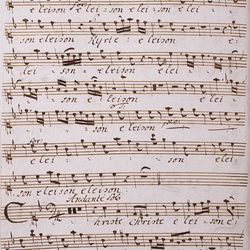 eleison eleison elei
son eleison Kyrie eleison
e lei son eleison elei
son e leison e lei
son eleison pia:
for: e lei son elei
son eleison, eleison.
Andante
Christe Christe e lei son e